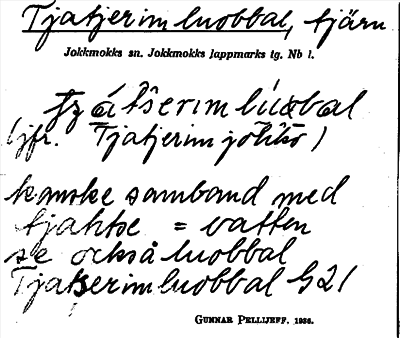 Tjatjerimluobbal, tjärn
Jokkmokks sn. Jokkmokks lappmarks tg. Nb l.
(jfr. Tjatjerim )
kanske samband med
tjahtse = vatten
se också luobbal
Tjatserimluobbal G21
GUNNAR PELLIJEFF. 1936.